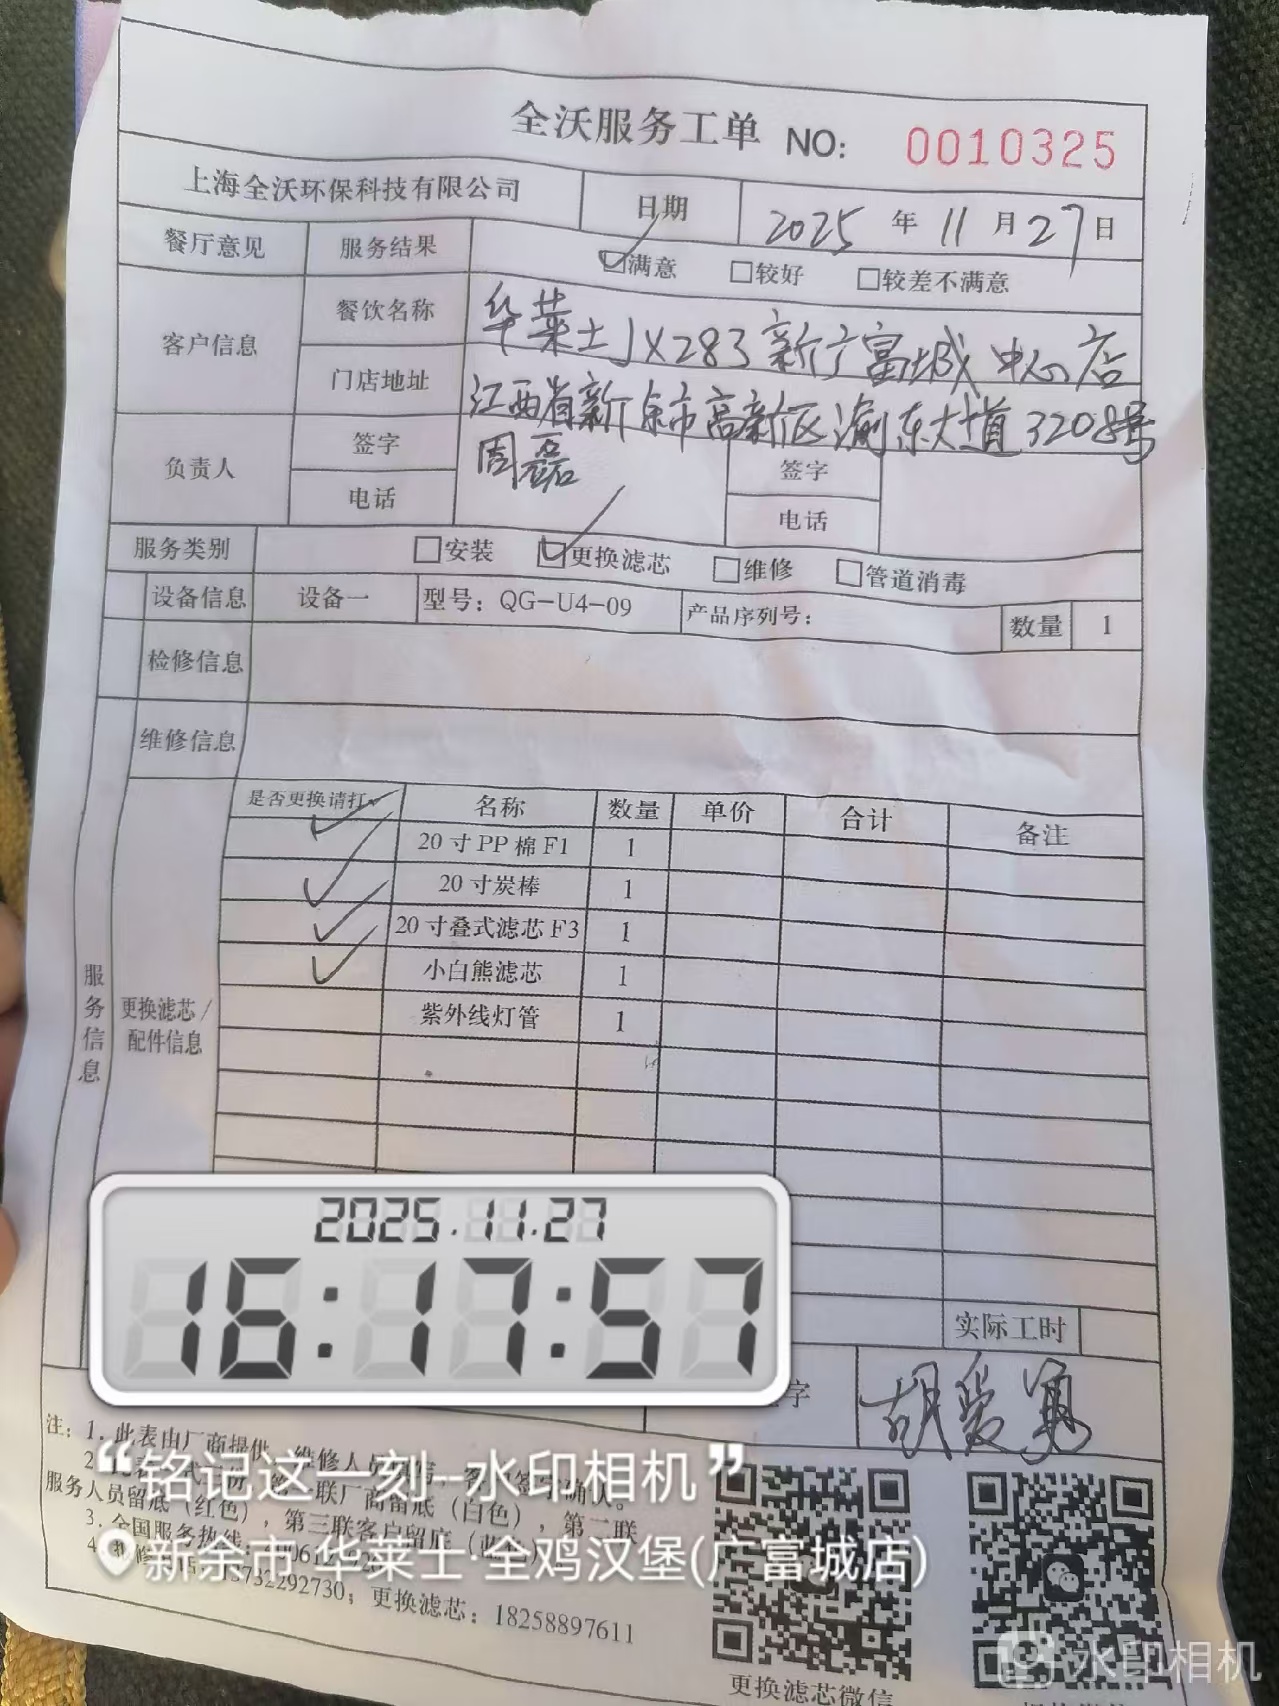 全沃服务工单 NO: 0010325
上海全沃环保科技有限公司 日期 2025 年 11 月 27 日
餐厅意见 服务结果 ☑满意 □较好 □较差不满意
客户信息 餐饮名称 华莱士JX283新广富城中心店
门店地址 江西省新余市高新区渝东大道3208号
负责人 签字 周磊 签字
电话 电话
服务类别 □安装 ☑更换滤芯 □维修 □管道消毒
设备信息 设备一 型号：QG-U4-09 产品序列号： 数量 1
检修信息
维修信息
服务信息
更换滤芯/配件信息
是否更换请打✓ 名称 数量 单价 合计 备注
✓ 20寸PP棉F1 1
✓ 20寸炭棒 1
✓ 20寸叠式滤芯F3 1
✓ 小白熊滤芯 1
紫外线灯管 1
2025.11.27
16:17:57
实际工时
字 胡爱勇
注：1.此表由厂商提供
联厂商留底（白色），第二联
服务人员留底（红色），第三联客户留底
3.全国服务热线：
更换滤芯：18258897611
“铭记这一刻--水印相机”
新余市 华莱士·全鸡汉堡(广富城店)
更换滤芯微信
水印相机